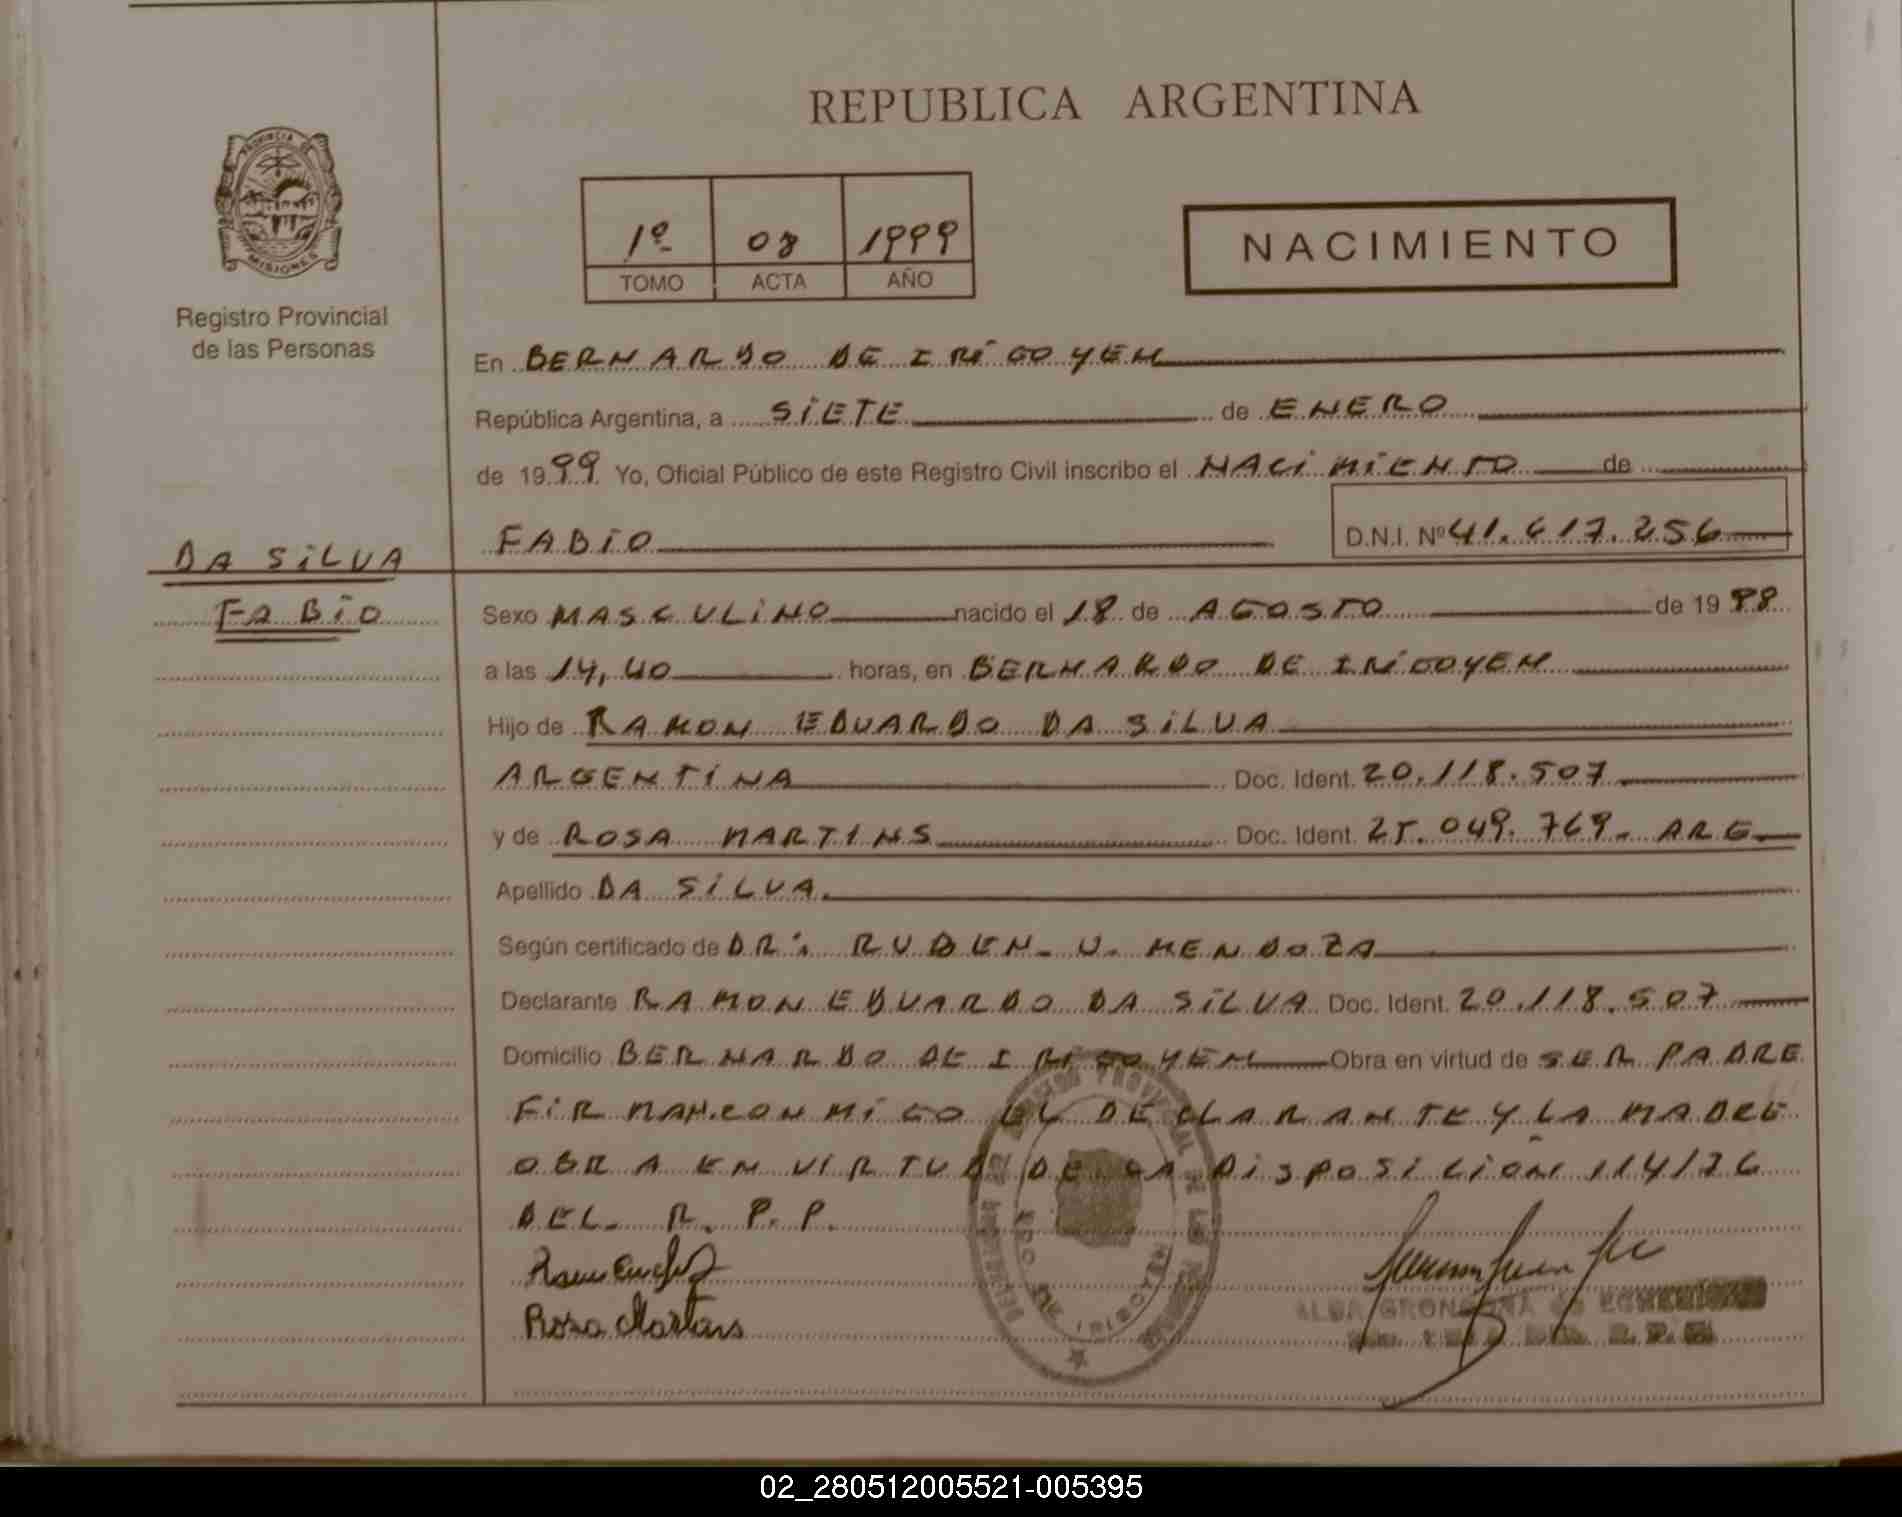 REPUBLICA ARGENTINA
PROVINCIA DE
MISIONES
Registro Provincial
de las Personas
1º 08 1999
TOMO ACTA AÑO
NACIMIENTO
En BERNARDO DE IRIGOYEN
República Argentina, a SIETE de ENERO
de 1999 Yo, Oficial Público de este Registro Civil inscribo el NACIMIENTO de
FABIO D.N.I. Nº 41.617.256
DA SILVA
FABIO
Sexo MASCULINO nacido el 18 de AGOSTO de 1998
a las 14,40 horas, en BERNARDO DE IRIGOYEN
Hijo de RAMON EDUARDO DA SILVA
ARGENTINA Doc. Ident. 20.118.507
y de ROSA MARTINS Doc. Ident. 25.049.769. ARG
Apellido DA SILVA.
Según certificado de DR: RUBEN U. MENDOZA
Declarante RAMON EDUARDO DA SILVA Doc. Ident. 20.118.507
Domicilio BERNARDO DE IRIGOYEN Obra en virtud de SER PADRE
FIRMAN CONMIGO EL DECLARANTE Y LA MADRE
OBRA EN VIRTUD DE LA DISPOSICION 114/76
DEL R.P.P.
Rosa Martins
ALBA GRONDONA de
02_280512005521-005395